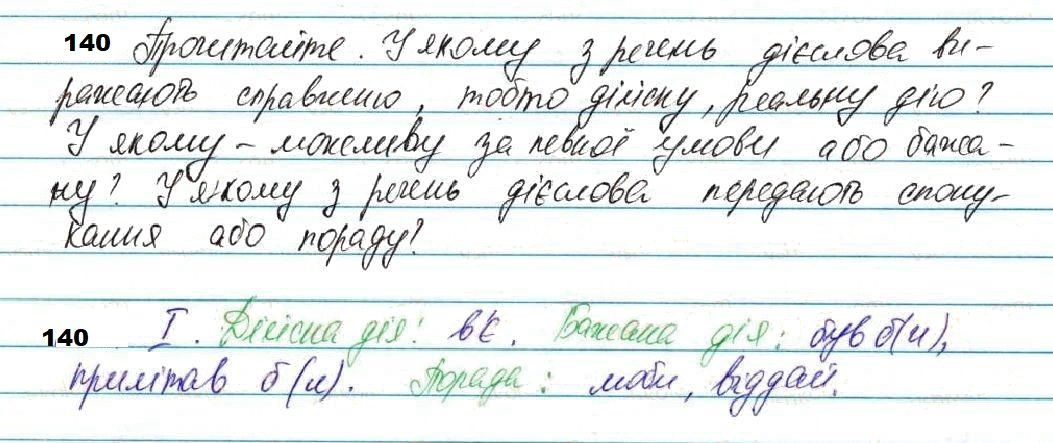 140 Прочитайте. У якому з речень дієслова ви-
ражають справжню, тобто дійсну, реальну дію?
У якому – можливу за певної умови або бажа-
ну? У якому з речень дієслова передають спону-
кання або пораду?
140 І. Дійсна дія: в'є. Бажана дія: був б(и),
прилітав б(и). Порада: люби, віддай.